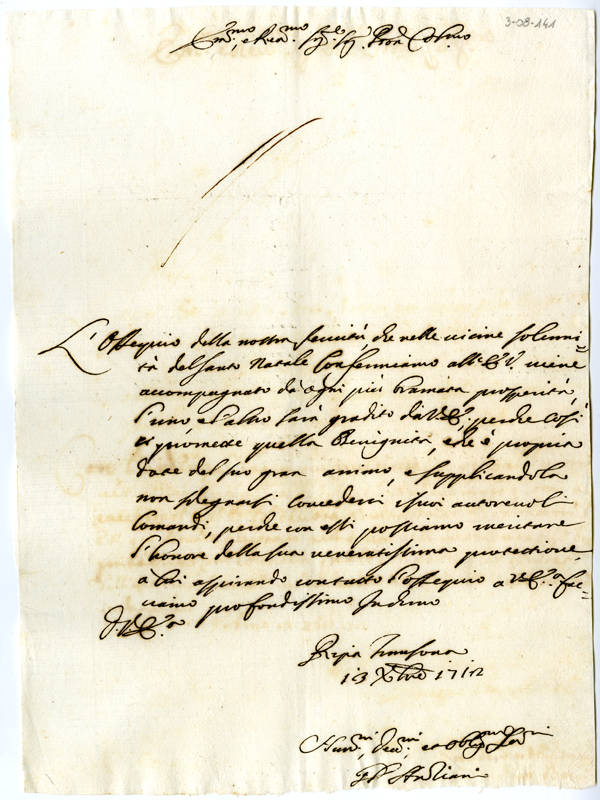 3-08-141
Em.mo, e Rev.mo Sig.r Sig.r Pron Col.mo
L'Ossequio della nostra servitù che nelle vicine solenni=
tà del santo Natale Confermiamo all'E.V. viene
accompagnato da ogni più bramata prosperità,
l'uno, e l'altro sarà gradito da V.E., perche così
ci promette quella Benignità, che è propria
dote del suo gran animo, e supplicandola
non sdegnarsi concederci i suoi autorevoli
Comandi, perche con essi possiamo meritare
l'honore della sua veneratissima protettione
à cui aspirando con tutto l'ossequio a V.E.a fac=
ciamo profondissimo Inchino
D.V.E.a
Ripa Transona
13 Xbre 1712
Hum.mi, Dev.mi et Obl.mi Ser.ri
Gl' Anziani